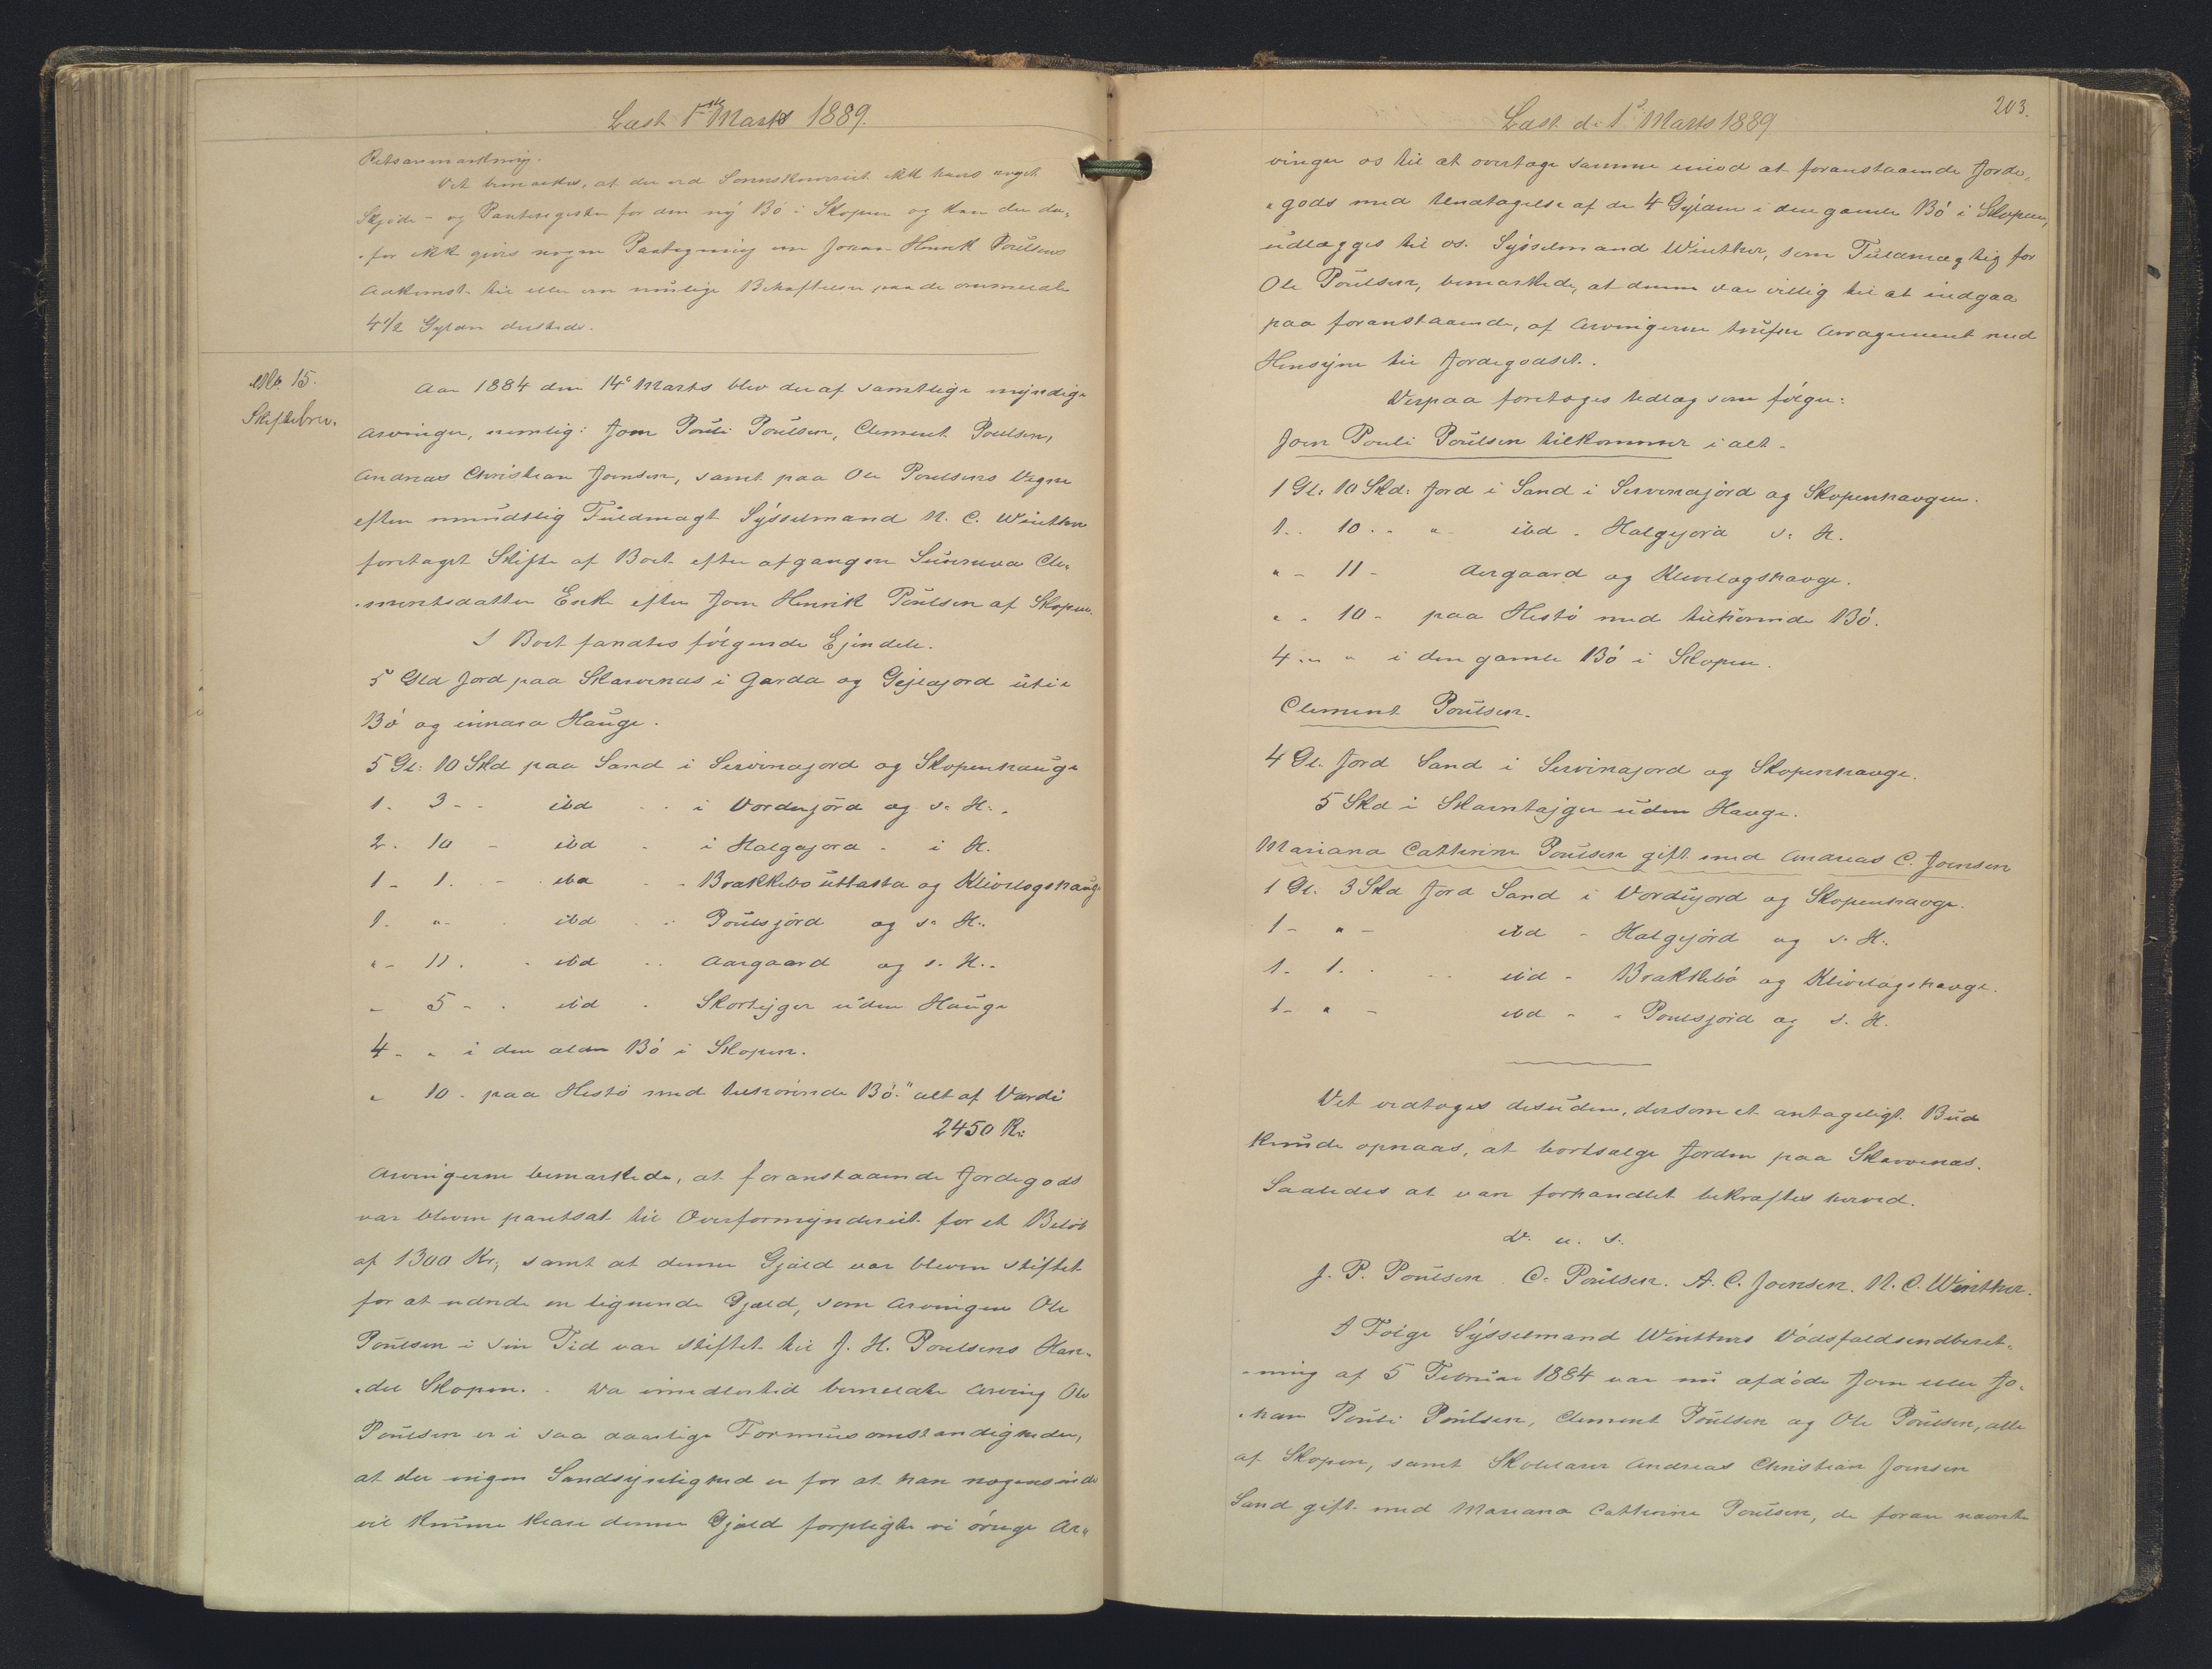 Læst 1ste Marts 1889.
Retsanmærkning.
Det bemærkes, at der ved Sorenskriveriet ikke haves noget
Skjøde- og Panteregister for den ny Bø i Skopen og kan der der-
-for ikke gives nogen Paategning om Johan Henrik Poulsens
Adkomst til eller om mulige Behæftelser paa de ommeldte
4 1/2 Gylden dersteds.
No 15.
Skiftebrev.
Aar 1884 den 14e Marts blev der af samtlige myndige
Arvinger, nemlig: Joen Pouli Poulsen, Clement Poulsen,
Andreas Christian Joensen, samt paa Ole Poulsens Vegne
efter mundtlig Fuldmagt Sysselmand N. C. Winther
foretaget Skifte af Boet efter afgangen Sunneva Cle-
-mentsdatter Enke efter Joen Henrik Poulsen af Skopen.
I Boet fandtes følgende Ejendele.
5 Gld Jord paa Skarvenæs i Garda og Gejlajord uti
Bø og innara Hauge.
5 Gl: 10 Skd paa Sand i Servinajord og Skopenhauge
1. 3 - - ibd - - i Vorderjörd og s. H..
2. 10 - ibd - i Halgajord - i H.
1 - 1. - - ibd - - Brækkebø uttasta og Klivelogshauge
1. "- - ibd - - Poulsjörd og s. H..
" - 11. - ibd - - Aargaard og s. H..
" 5 - - ibd - Skortejger uden Hauge
4 - " i den alden Bø i Skopen.
" 10 - paa Hestø med tilhørende Bø." alt af Værdi
2450 Kr
Arvingerne bemærkede, at foranstaaende Jordegods
var bleven pantsat til Overformynderiet for et Beløb
af 1300 Kr, samt at denne Gjæld var bleven stiftet
for at udrede en lignende Gjæld, som Arvingen Ole
Poulsen i sin Tid var skiftet til J. H. Poulsens Han-
-del Skopen. Da imidlertid bemeldte Arving Ole
Poulsen er i saa daarlige Formuesomstændigheder,
at der ingen Sandsynlighed er for at han nogensinde
vil kunne klare denne Gjæld forpligte vi øvrige Ar-
203.
Læst d. 1e Marts 1889
vinger os til at overtage samme imod at foranstaaende Jorde-
-gods med Undtagelse af de 4 Gylden i den gamle Bø i Skopen,
udlægges til os. Sysselmand Winther, som Fuldmægtig for
Ole Poulsen, bemærkede, at denne var villig til at indgaa
paa foranstaaende, af Arvingerne trufne Arragement med
Hensyn til Jordegodset.
Derpaa foretoges Udlæg som følger:
Joen Pouli Poulsen tilkommer i alt -
1 Gl: 10 Skd: Jord i Sand i Servinajörd og Skopenhaugen.
1. . 10 . . " - ibd - Halgejord s. H.
" - 11 - Aargaard og Klivelogshauge.
" - 10 - paa Hestø med tilhørende Bø.
4 - " " i den gamle Bø i Skopen.
Clement Poulsen.
4 Gl. Jord Sand i Servinajord og Skopenhauge.
5 Skd i Skarntejger uden Hauge.
Mariana Cathrine Poulsen gift med Andreas C. Joensen
1 Gl. 3 Skd Jord Sand i Vordujord og Skopenhauge.
1 - " - ibd - Halgejörd og s. H.
1. 1. - - ibd - Brækkebø og Klivelogshauge.
1 - " - ibd - - Poulsjörd og s. H.
Det vedtoges desuden, dersom et antageligt Bud
kunde opnaas, at bortsælge Jorden paa Skarvenæs.
Saaledes at være forhandlet bekræftes herved.
D. u. s.
J. P. Poulsen. C. Poulsen. A. C. Joensen. N. C. Winther.
I Følge Sysselmand Winthers Dødsfaldsindberet-
-ning af 5 Februar 1884 var nu afdøde Joen eller Jo-
-han Pouli Poulsen, Clement Poulsen og Ole Poulsen, alle
af Skopen, samt Skolelærer Andreas Christian Joensen
Sand gift med Mariana Cathrine Poulsen, de foran nævnte